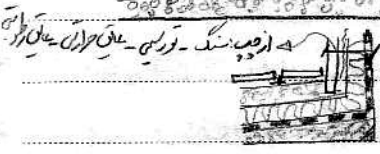 از چپ: سنگ - تورسیمی - عایق حرارتی - عایق رطوبتی